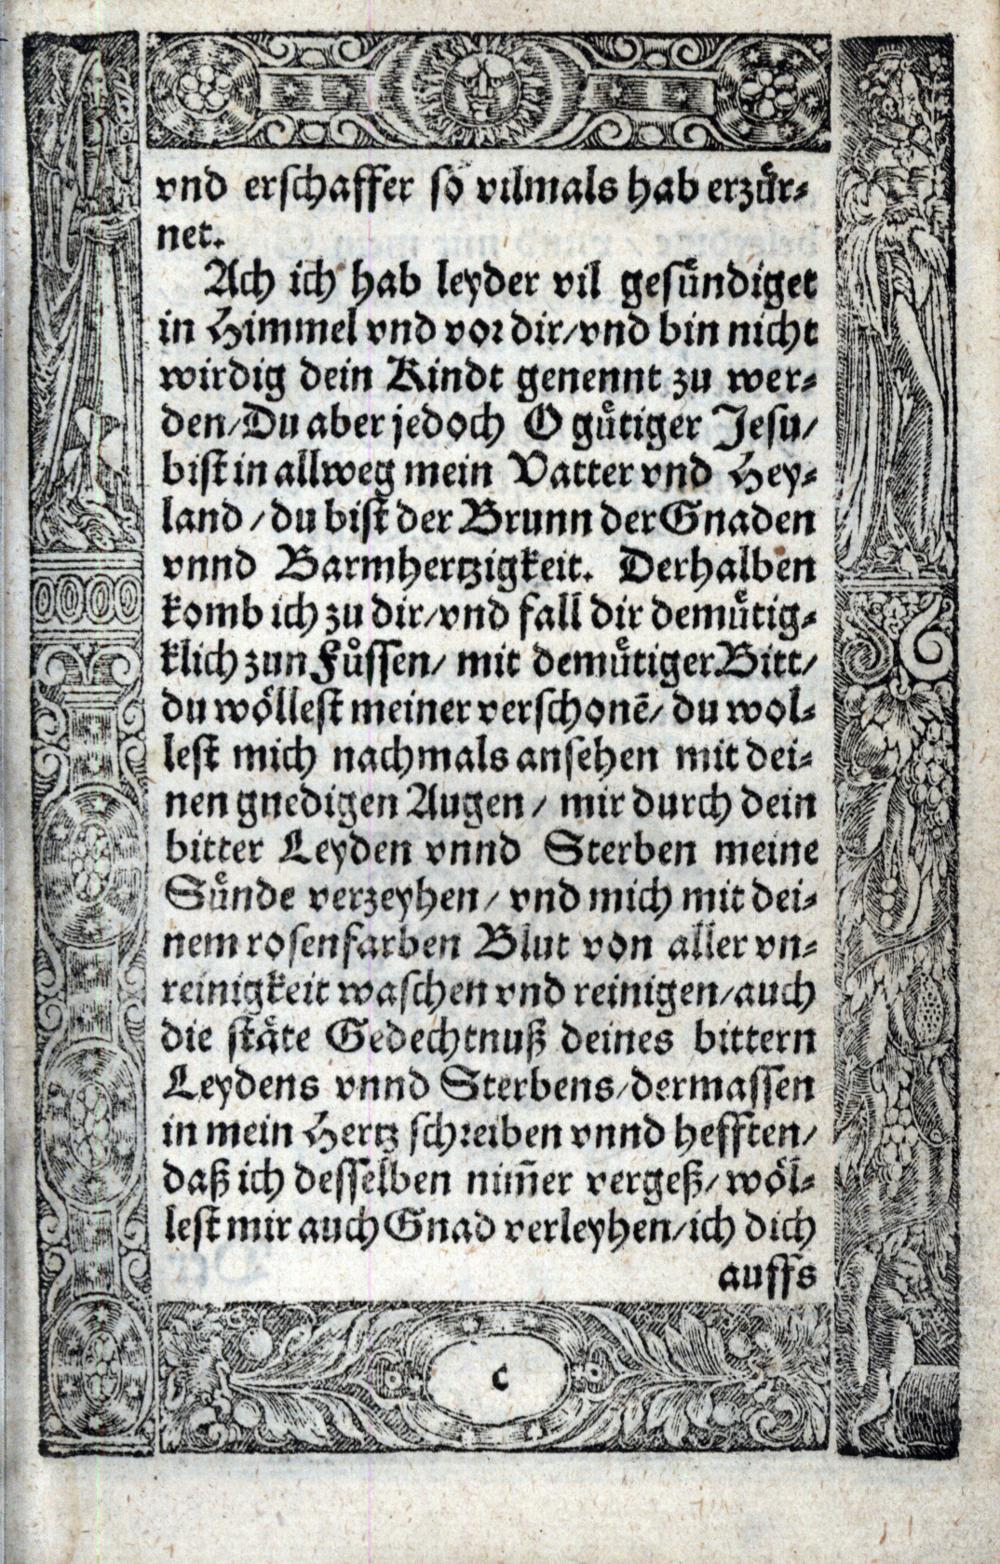 vnd erschaffer so vilmals hab erzür-
net.
Ach ich hab leyder vil gesündiget
in Himmel vnd vor dir/vnd bin nicht
wirdig dein Kindt genennt zu wer-
den/Du aber jedoch O gütiger Jesu/
bist in allweg mein Vatter vnd Hey-
land/du bist der Brunn der Gnaden
vnnd Barmhertzigkeit. Derhalben
komb ich zu dir/vnd fall dir demütig-
klich zun Füssen/ mit demütiger Bitt/
du wöllest meiner verschonē/ du wol-
lest mich nachmals ansehen mit dei-
nen gnedigen Augen/ mir durch dein
bitter Leyden vnnd Sterben meine
Sünde verzeyhen/ vnd mich mit dei-
nem rosenfarben Blut von aller vn-
reinigkeit waschen vnd reinigen/auch
die stäte Gedechtnuß deines bittern
Leydens vnnd Sterbens/dermassen
in mein Hertz schreiben vnnd hefften/
daß ich desselben nim̄er vergeß/wöl-
lest mir auch Gnad verleyhen/ich dich
auffs
c